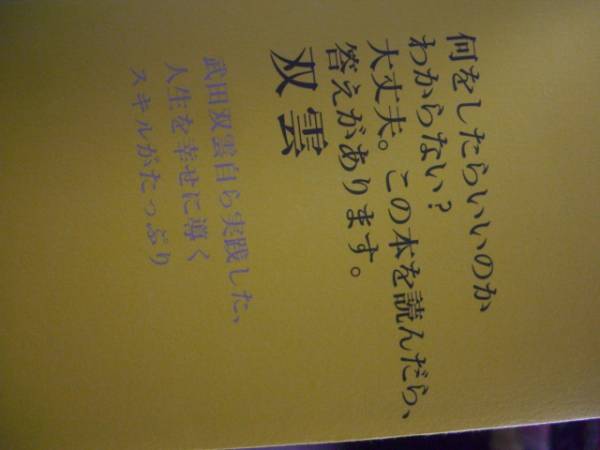 何をしたらいいのか
わからない？
大丈夫。この本を読んだら、
答えがあります。
双雲
武田双雲自ら実践した、
人生を幸せに導く
スキルがたっぷり